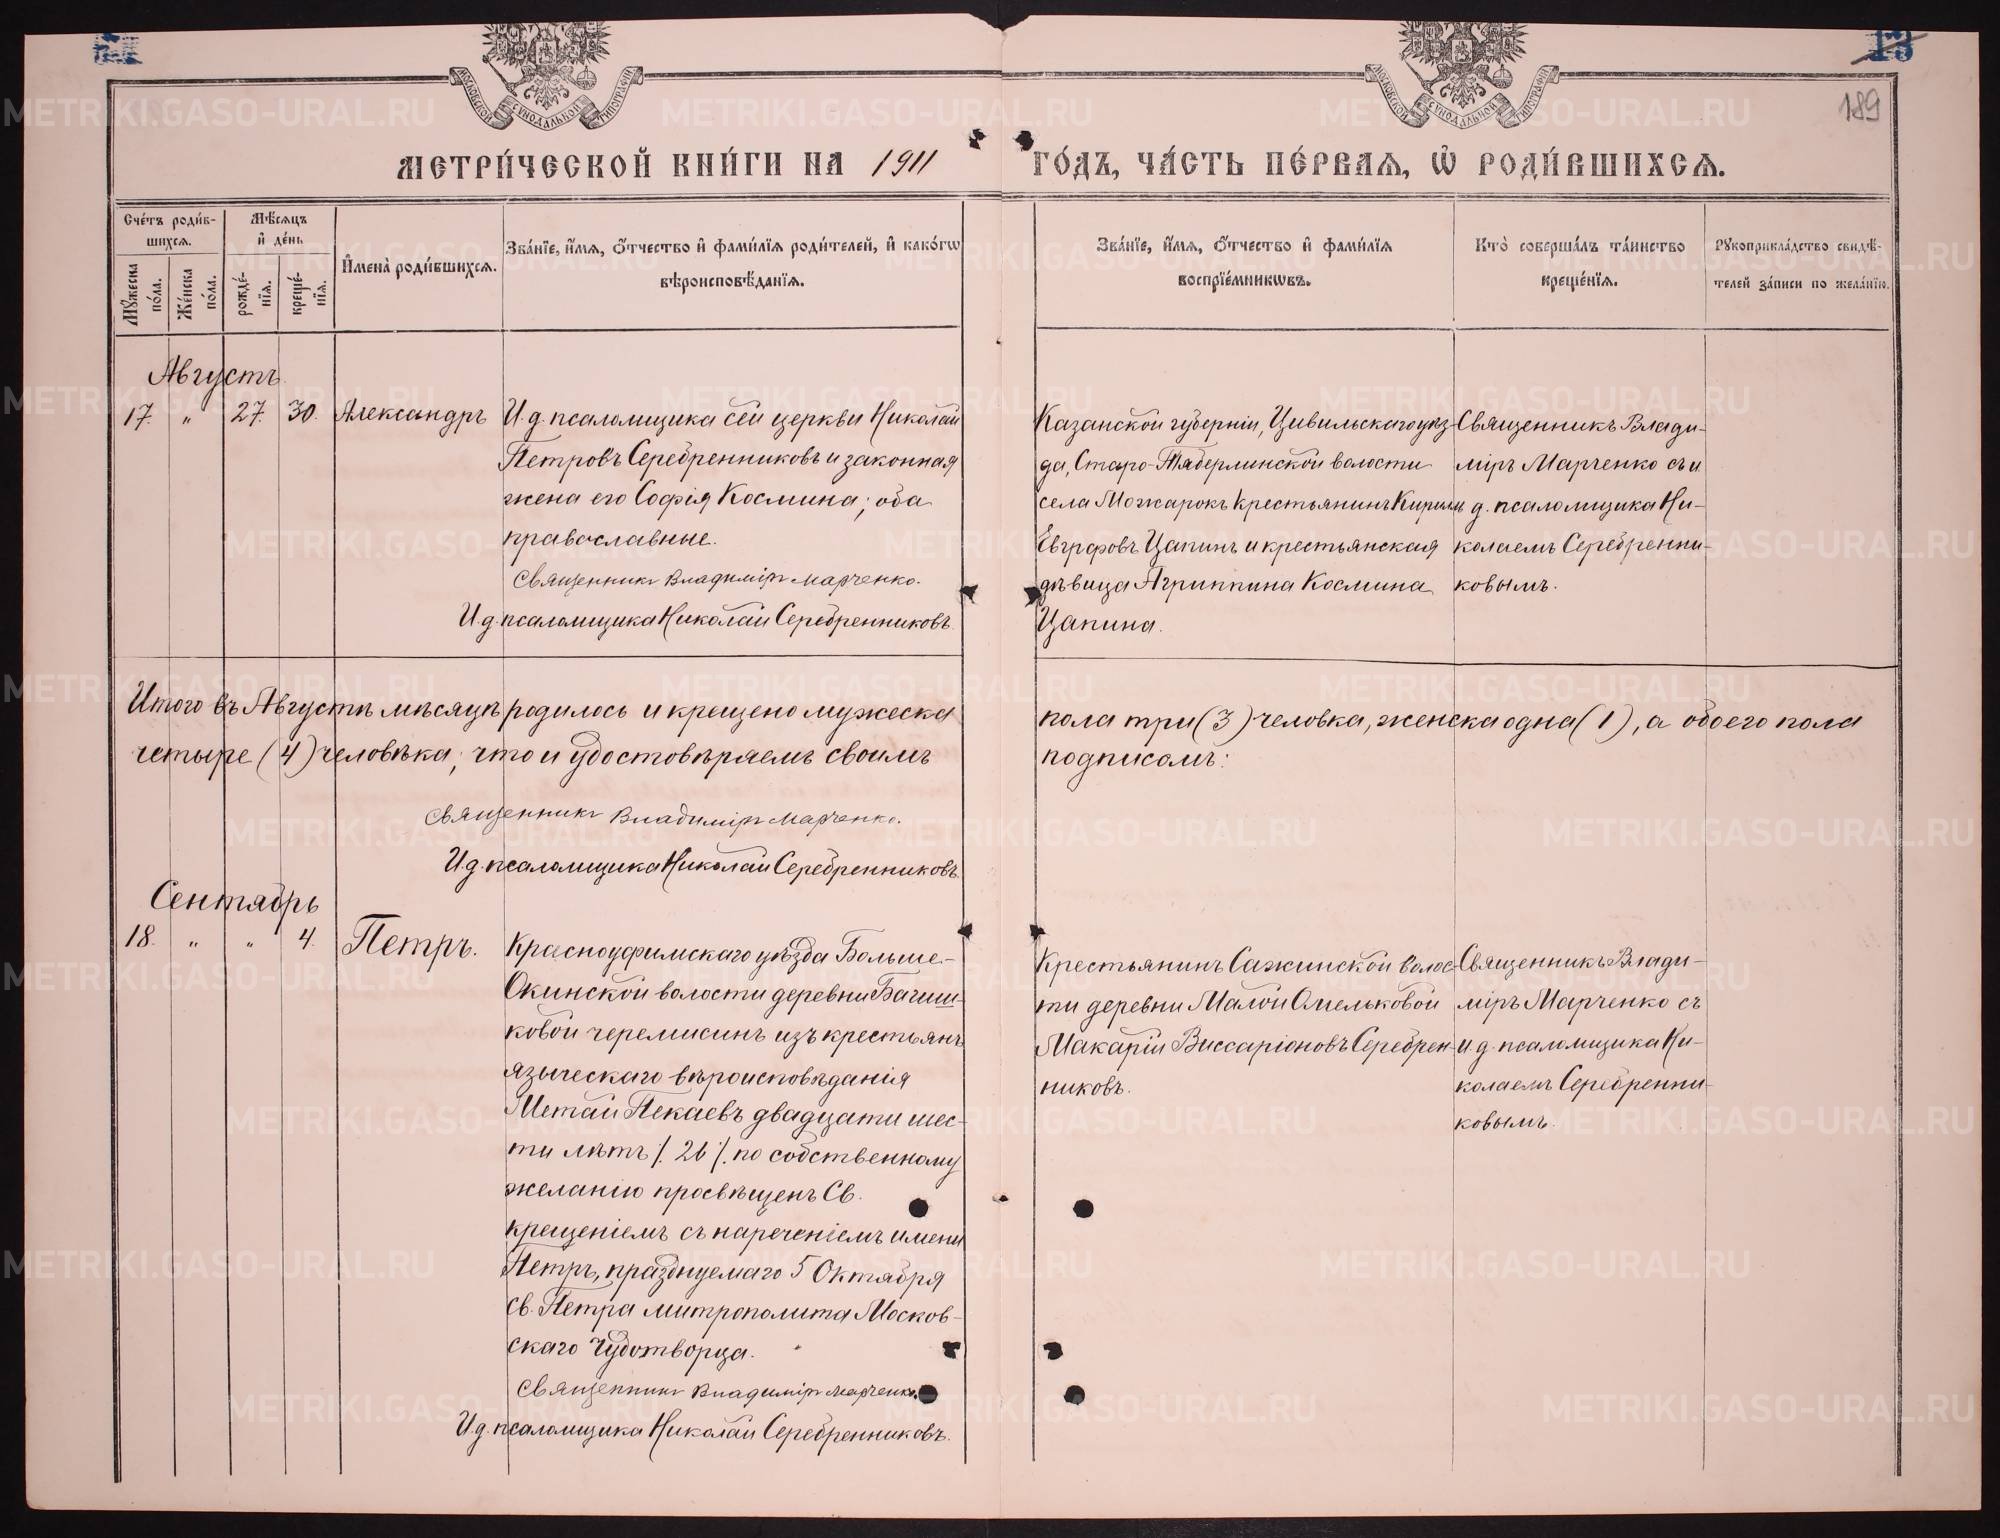 189
МОСКОВСКОЙ СУНОДАЛЬНОЙ ТИПОГРАФІИ
МОСКОВСКОЙ СУНОДАЛЬНОЙ ТИПОГРАФІИ
МЕТРИ́ЧЕСКОЙ КНИ́ГИ НА 1911 ГО́ДЪ, ЧА́СТЬ ПЕ́РВАѦ, Ѡ҆ РОДИ́ВШИХСѦ.
Сче́тъ роди́в-
шихсѧ.
Мꙋжеска
по́ла.
Же́нска
по́ла.
Мѣ́сѧцъ
и҆ де́нь
рожде́-
нїѧ.
креще́-
нїѧ.
И҆мена̀ роди́вшихсѧ.
Зва́нїе, и҆́мѧ, ѻ҆́тчество и҆ фами́лїѧ роди́телей, и҆ како́гѡ
вѣроисповѣ́данїѧ.
Зва́нїе, и҆́мѧ, ѻ҆́тчество и҆ фами́лїѧ
воспрїе́мникѡвъ.
Кто̀ соверша́лъ та́инство
креще́нїѧ.
Рꙋкоприкла́дство свидѣ́-
телей за́писи по жела́нїю.
Августъ
17. " 27. 30. Александръ
И. д. псаломщика сей церкви Николай
Петровъ Серебренниковъ и законная
жена его Софія Космина; оба
православные.
Священникъ Владиміръ Марченко.
И. д. псаломщика Николай Серебренниковъ.
Казанской губерніи, Цивильскаго уѣз-
да, Старо-Тяберлинской волости
села Можарокъ крестьянинъ Кириллъ
Евгрфовъ Цапинъ и крестьянская
дѣвица Агриппина Космина
Цапина.
Священникъ Влади-
міръ Марченко съ и
д. псаломщика Ни-
колаемъ Серебренни-
ковымъ.
Итого въ Августѣ мѣсяцѣ родилось и крещено мужеска пола три (3) человка, женска одна (1), а обоего пола
четыре (4) человѣка, что и удостовѣряемъ своимъ подписомъ:
Священникъ Владиміръ Марченко.
И. д. псаломщика Николай Серебренниковъ.
Сентябрь
18. " " 4. Петръ.
Красноуфимскаго уѣзда Больше-
Окинской волости деревни Бачии-
ковой черемисинъ изъ крестьянъ
языческаго вѣроисповѣданія
Метай Пекаевъ двадцати шес-
ти лѣтъ /. 26 /. по собственному
желанію просвѣщенъ Св.
крещеніемъ съ нареченіемъ имени
Петръ, празднуемаго 5 Октября
св. Петра митрополита Москов-
скаго Чудотворца.
Священникъ Владиміръ Марченко.
И. д. псаломщика Николай Серебренниковъ.
Крестьянинъ Сажинской волос-
ти деревни Малой Омельковой
Макарій Виссаріоновъ Серебрен-
никовъ.
Священникъ Влади-
міръ Марченко съ
и. д. псаломщика Ни-
колаемъ Серебренни-
ковымъ.
METRIKI.GASO-URAL.RU